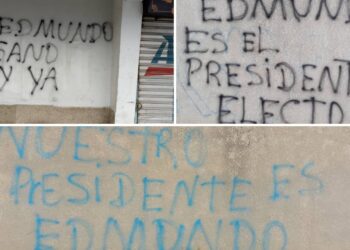 EDMUNDO
GANO
Y YA
EDMUNDO
ES EL
PRESIDENTE
ELECTO
NUESTRO
PRESIDENTE ES
EDMUNDO